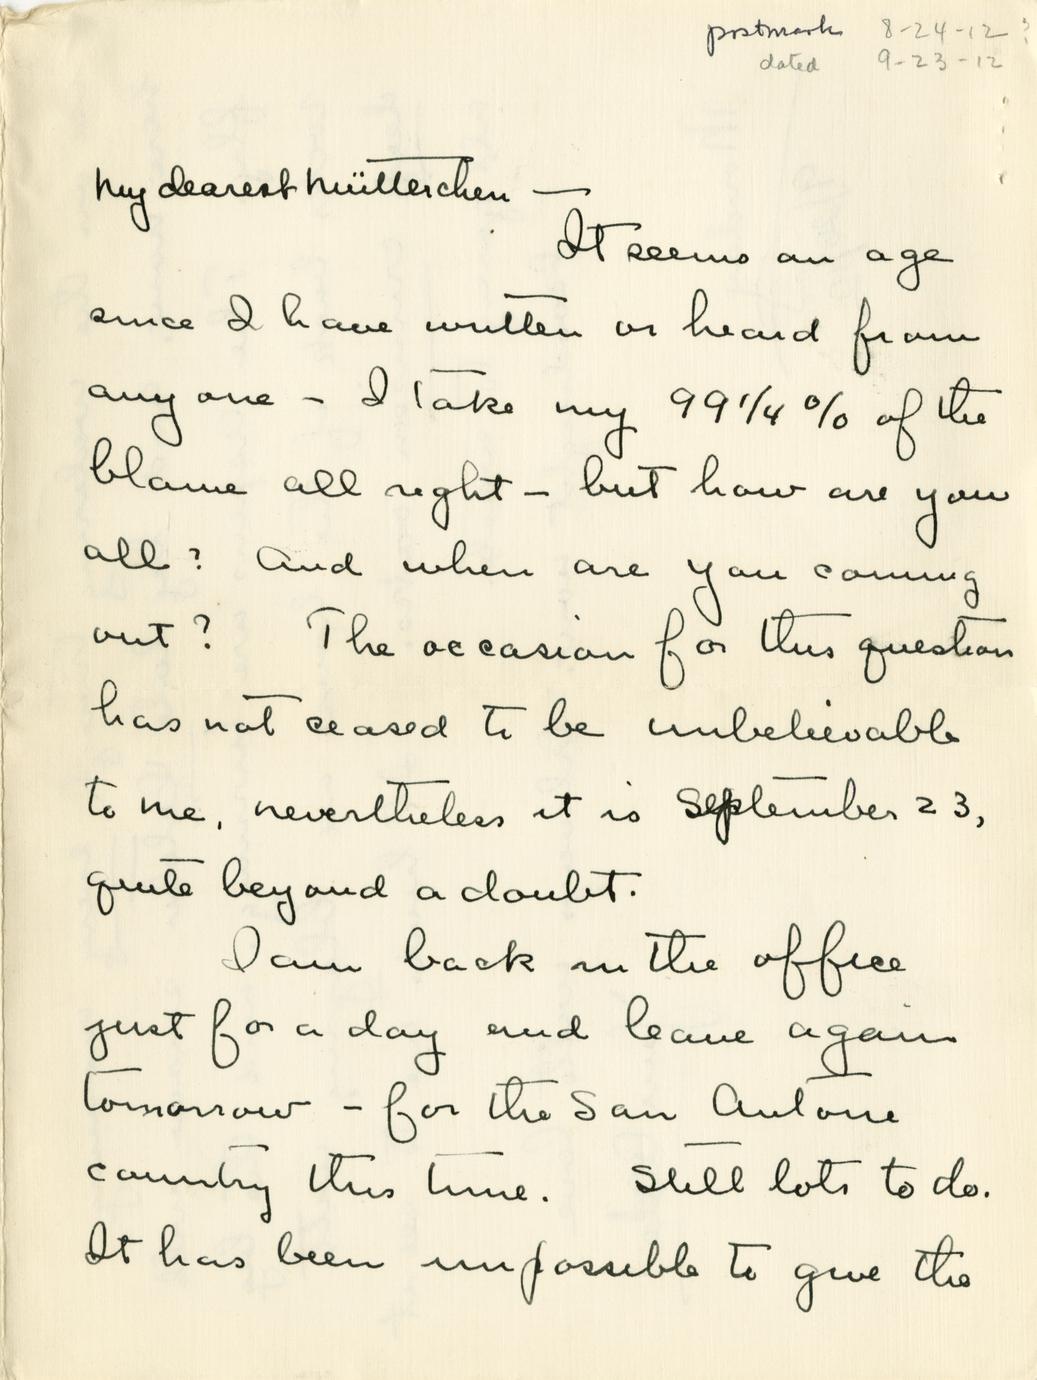 postmark 8-24-12 ?
dated 9-23-12
My dearest Mütterchen —
It seems an age
since I have written or heard from
any one - I take my 99 1/4 % of the
blame all right - but how are you
all? And when are you coming
out? The occasion for this question
has not ceased to be unbelievable
to me, nevertheless it is September 23,
quite beyond a doubt.
I am back in the office
just for a day and leave again
tomorrow - for the San Antone
country this time. Still lots to do.
It has been impossible to give the